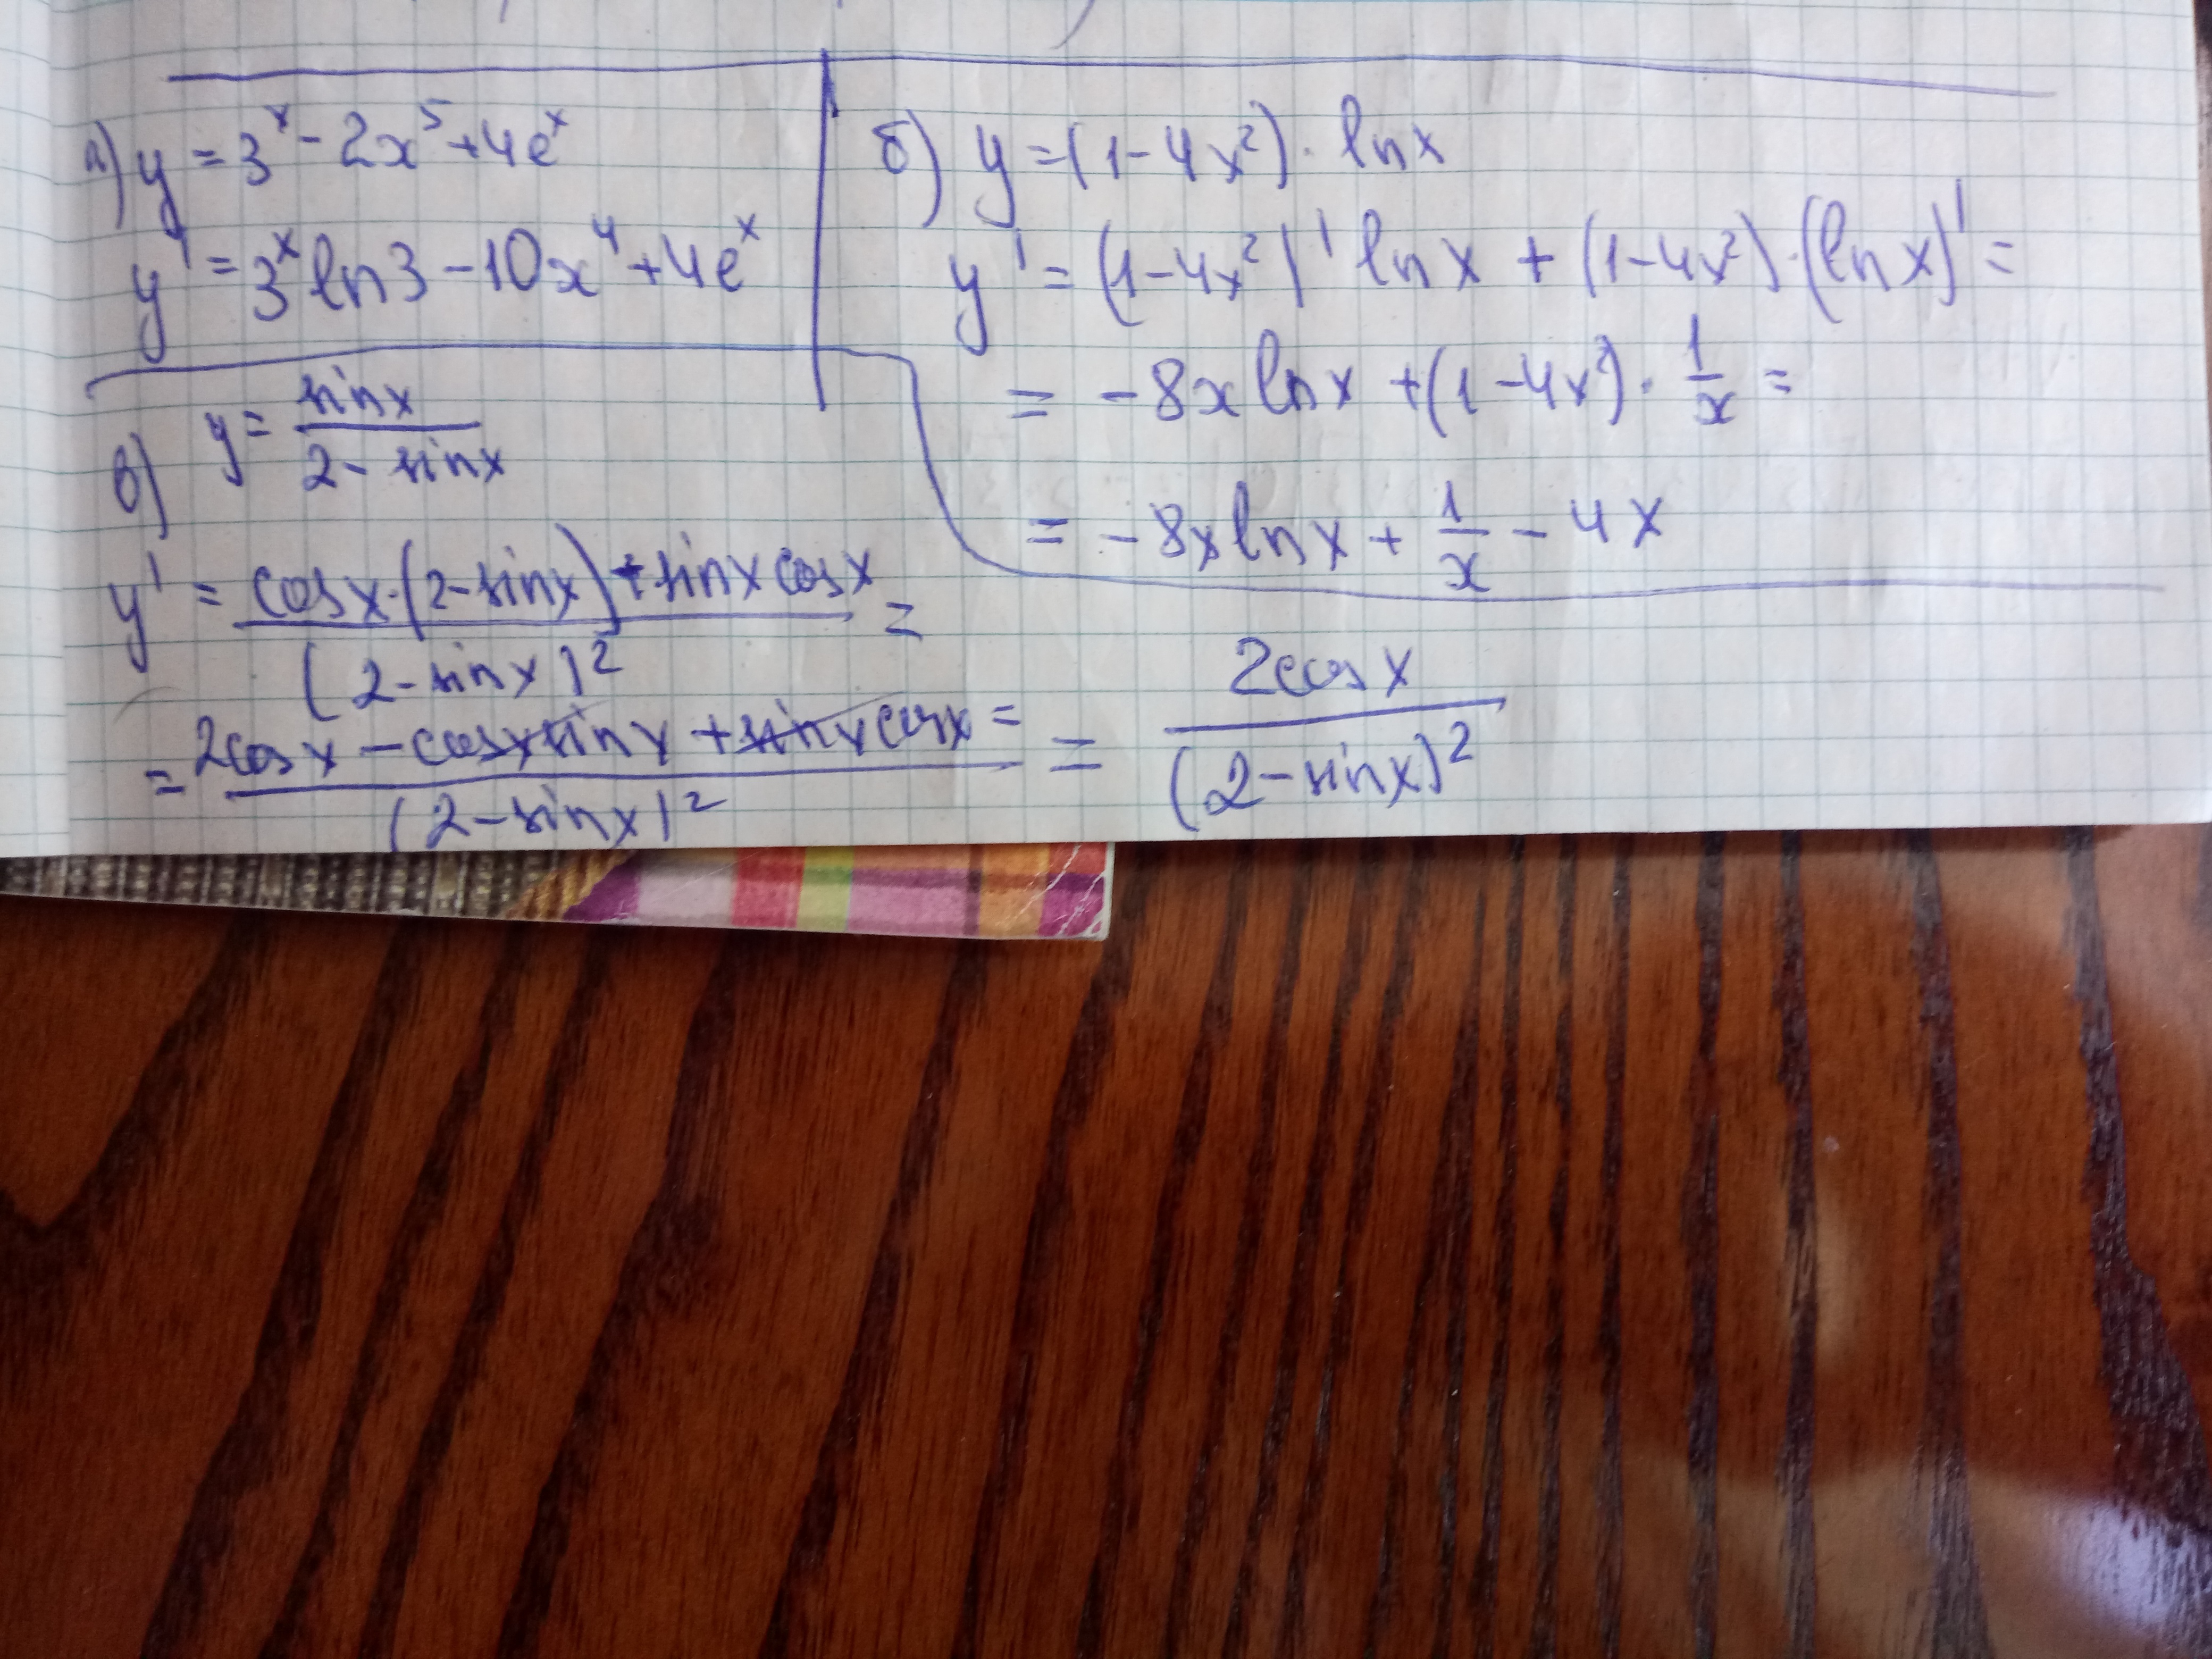 а) y = 3^x - 2x^5 + 4e^x
y' = 3^x ln3 - 10x^4 + 4e^x
б) y = (1-4x^2) · lnx
y' = (1-4x^2)' lnx + (1-4x^2)·(lnx)' =
= -8x lnx + (1-4x^2) · 1/x =
= -8x lnx + 1/x - 4x
в) y = sinx / (2 - sinx)
y' = (cosx·(2-sinx) + sinx cosx) / (2-sinx)^2 =
= (2cosx - cosx sinx + sinx cosx) / (2-sinx)^2 = = 2cosx / (2-sinx)^2